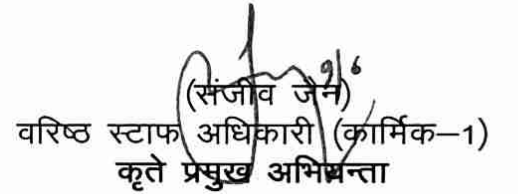 9/6
(संजीव जैन)
वरिष्ठ स्टाफ अधिकारी (कार्मिक–1)
कृते प्रमुख अभियन्ता